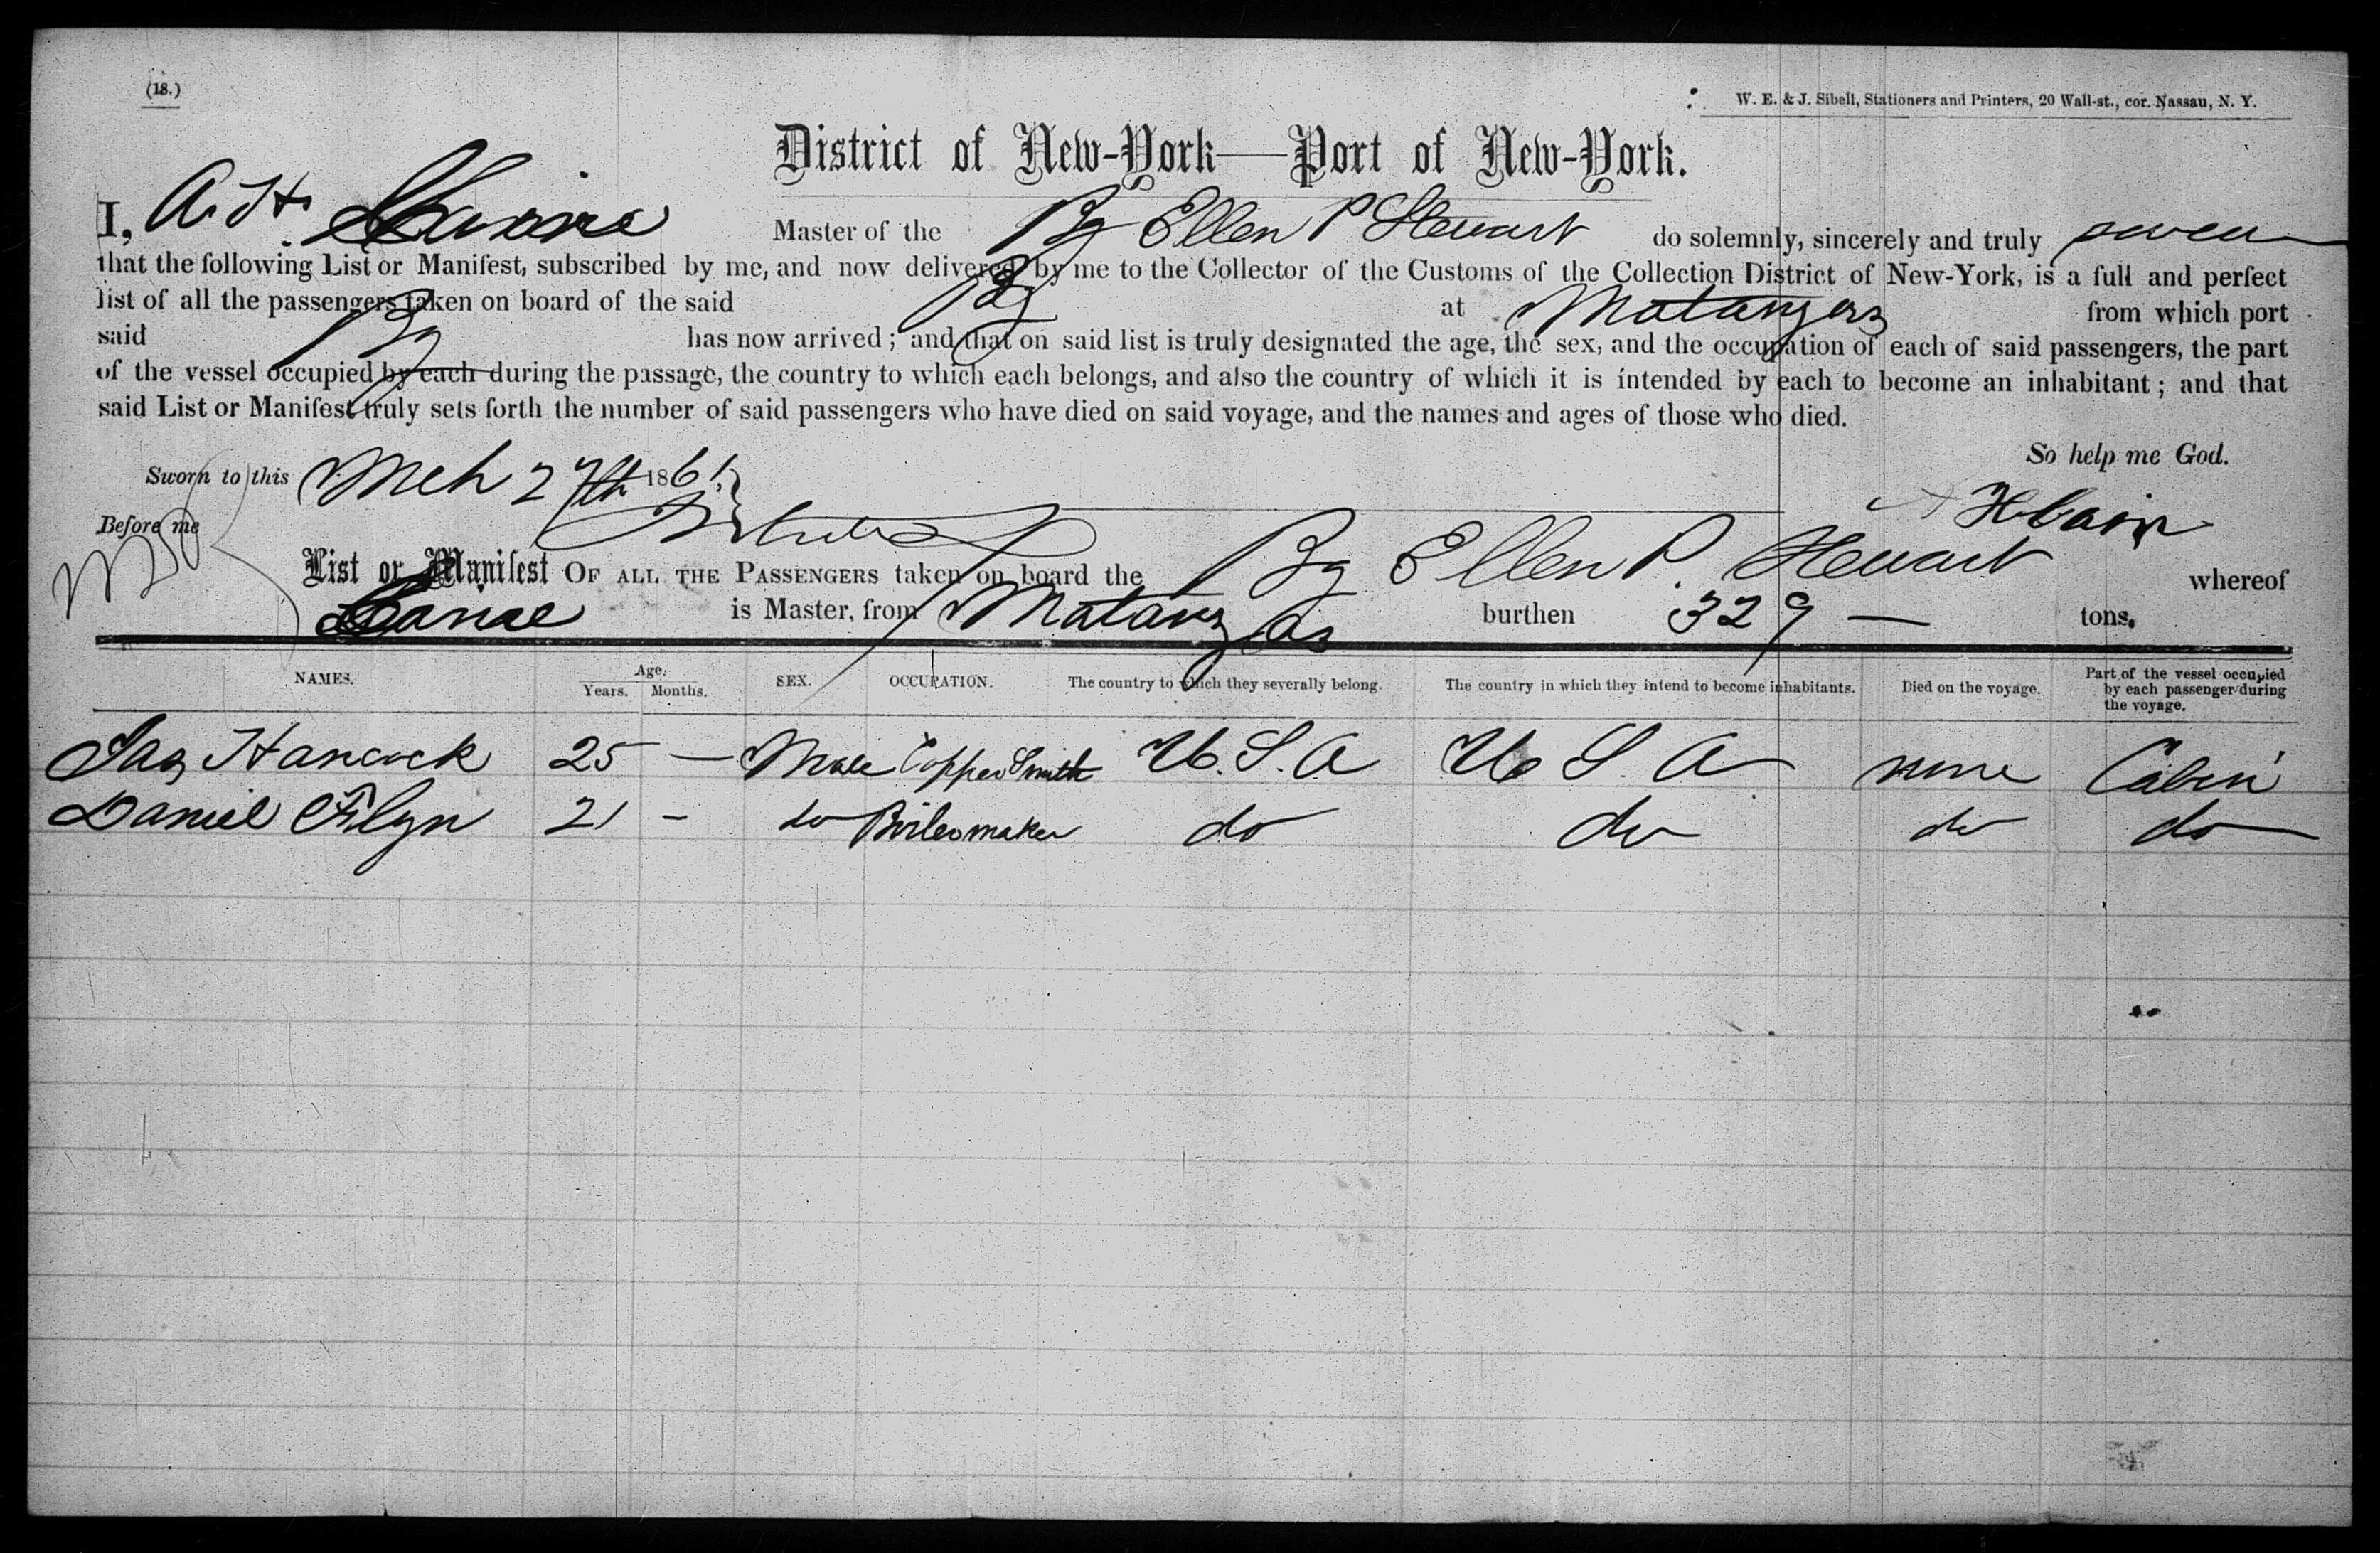 (18.)
W. E. & J. Sibell, Stationers and Printers, 20 Wall-st., cor. Nassau, N. Y.
District of New-York—Port of New-York.
I, A. H. Master of the Bg Ellen P Stewart do solemnly, sincerely and truly swear
that the following List or Manifest, subscribed by me, and now delivered by me to the Collector of the Customs of the Collection District of New-York, is a full and perfect
list of all the passengers taken on board of the said Bg at Matanzas from which port
said Bg has now arrived; and that on said list is truly designated the age, the sex, and the occupation of each of said passengers, the part
of the vessel occupied by each during the passage, the country to which each belongs, and also the country of which it is intended by each to become an inhabitant; and that
said List or Manifest truly sets forth the number of said passengers who have died on said voyage, and the names and ages of those who died.
So help me God.
Sworn to this Mch 27th 1861
Before me
List or Manifest OF ALL THE PASSENGERS taken on board the Bg Ellen P. Stewart whereof
is Master, from Matanzas burthen 329 — tons.
NAMES. Age. Years. Months. SEX. OCCUPATION. The country to which they severally belong. The country in which they intend to become inhabitants. Died on the voyage. Part of the vessel occupied by each passenger during the voyage.
Jas Hancock 25 — Male Copper Smith U. S. A U S. A none Cabin
Daniel 21 - do Boilermaker do do do do